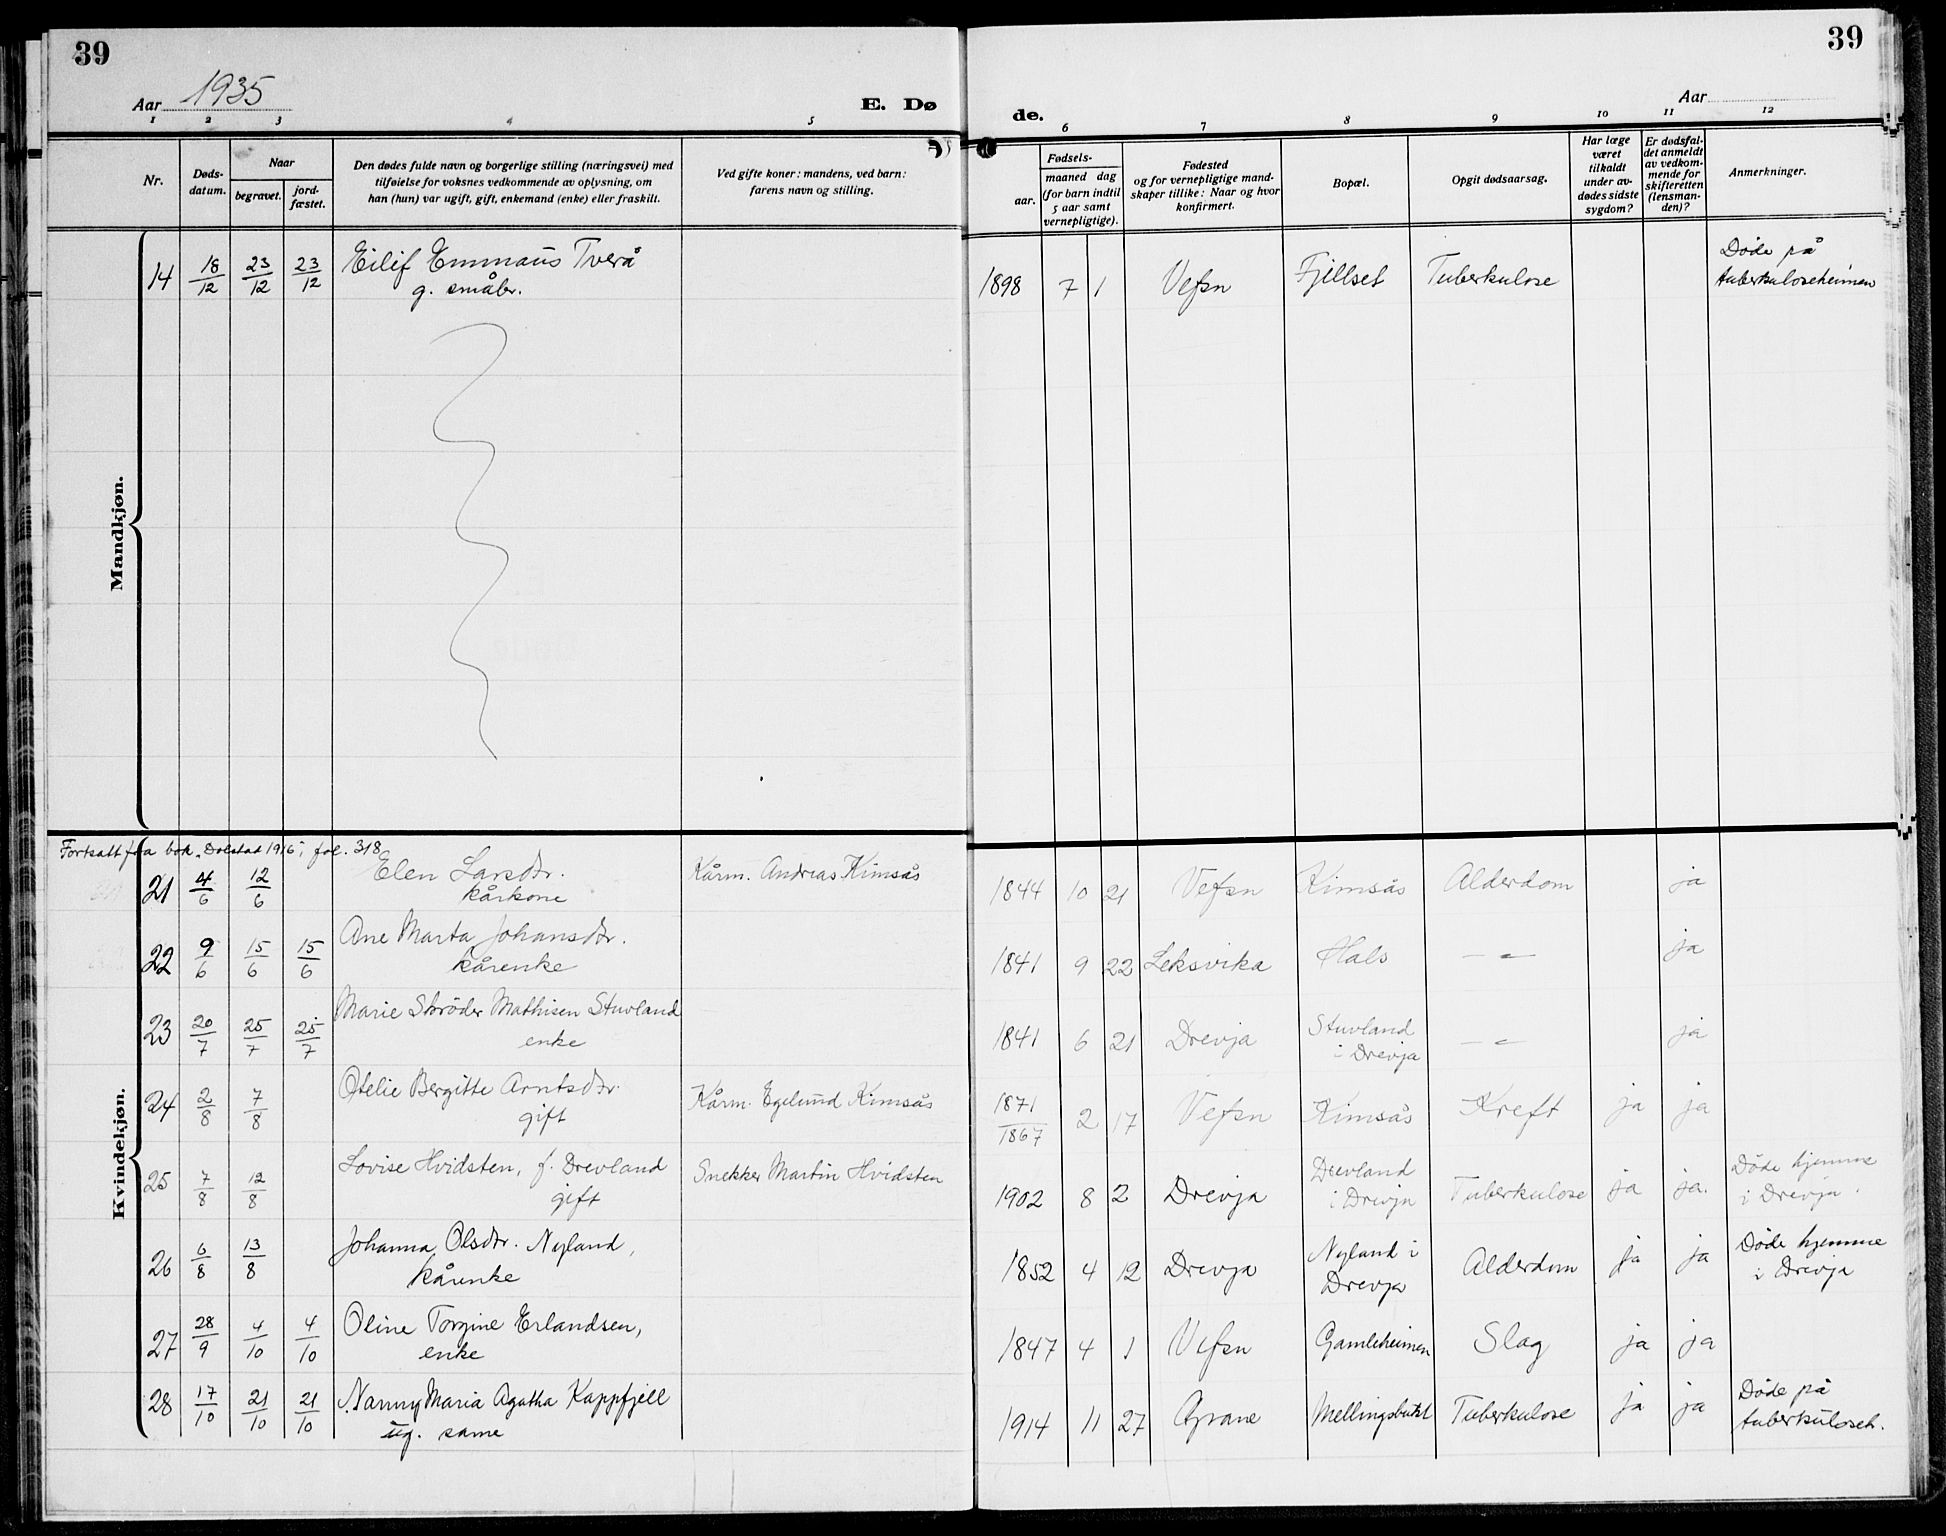 39
39
Aar 1935
E. Dø
de.
Aar
1 2 3 4 5 6 7 8 9 10 11 12
Nr.
Døds-
datum.
Naar
begravet.
jord-
fæstet.
Den dødes fulde navn og borgerlige stilling (næringsvei) med
tilføielse for voksnes vedkommende av oplysning, om
han (hun) var ugift, gift, enkemand (enke) eller fraskilt.
Ved gifte koner: mandens, ved barn:
farens navn og stilling.
Fødsels-
aar.
maaned dag
(for barn indtil
5 aar samt
vernepligtige).
Fødested
og for vernepligtige mand-
skaper tillike: Naar og hvor
konfirmert.
Bopæl.
Opgit dødsaarsag.
Har læge
været
tilkaldt
under av-
dødes sidste
sygdom?
Er dødsfal-
det anmeldt
av vedkom-
mende for
skifteretten
(lensman-
den)?
Anmerkninger.
Mandkjøn.
14 18/12 23/12 23/12 Eilif Emmaus Tverå
g. småbr.
1898 7 1 Vefsn Fjellset Tuberkulose
Døde på
tuberkuloseheimen
Kvindekjøn.
Fortsatt fra bok "Dolstad 1916", fol. 318
21 4/6 12/6 Elen Larsdtr.
kårkone
Kårm. Andreas Kimsås
1844 10 21 Vefsn Kimsås Alderdom ja
22 9/6 15/6 15/6 Ane Marta Johansdtr.
kårenke
1841 9 22 Leksvika Hals — " — ja
23 20/7 25/7 25/7 Marie Skrøder Mathisen Stuvland
enke
1841 6 21 Drevja Stuvland
i Drevja
— " — ja
24 2/8 7/8 Otelie Bergitte Arntsdtr.
gift
Kårm. Egelund Kimsås
1871/1867 2 17 Vefsn Kimsås Kreft ja ja
25 7/8 12/8 Lovise Hvidsten, f. Drevland
gift
Snekker Martin Hvidsten
1902 8 2 Drevja Drevland
i Drevja
Tuberkulose ja ja.
Døde hjemme
i Drevja.
26 6/8 13/8 Johanna Olsdtr. Nyland,
kårenke
1852 4 12 Drevja Nyland i
Drevja
Alderdom ja ja
Døde hjemme
i Drevja
27 28/9 4/10 4/10 Oline Torgine Erlandsen,
enke
1847 4 1 Vefsn Gamleheimen Slag ja ja
28 17/10 21/10 21/10 Nanny Maria Agatha Kappfjell
ug. same
1914 11 27 Grane Mellingsbukt Tuberkulose ja ja
Døde på
tuberkuloseh.